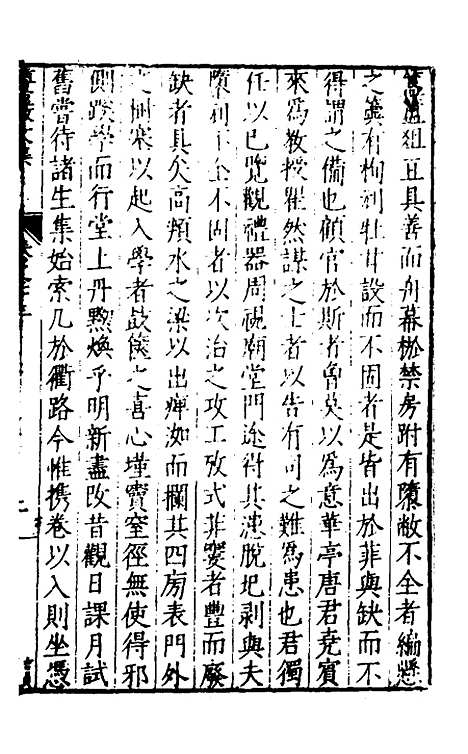 簠簋俎豆具善而舟幕棜禁房附有隳敝不全者編懸
之簴有栒刓牡甘設而不固者是皆出於菲與缺而不
得謂之備也顧官於斯者魯莫以為意華亭唐君堯賓
來為教授瞿然謀之士者以告有司之難為患也君獨
任以已覽觀禮器周視廟堂門途得其漶脫圮剥與夫
隳刓下全不固者以次治之攻工攷式菲窶者豐而廢
缺者具矣高頖水之梁以出痺洳而欄其四房表門外
之柵寀以起入學者敁儀之喜心墐竇窒徑無使得邪
側跌學而行堂上丹黝煥乎明新盡改昔觀日課月試
舊嘗待諸生集始索几於衢路今惟携卷以入則坐憑